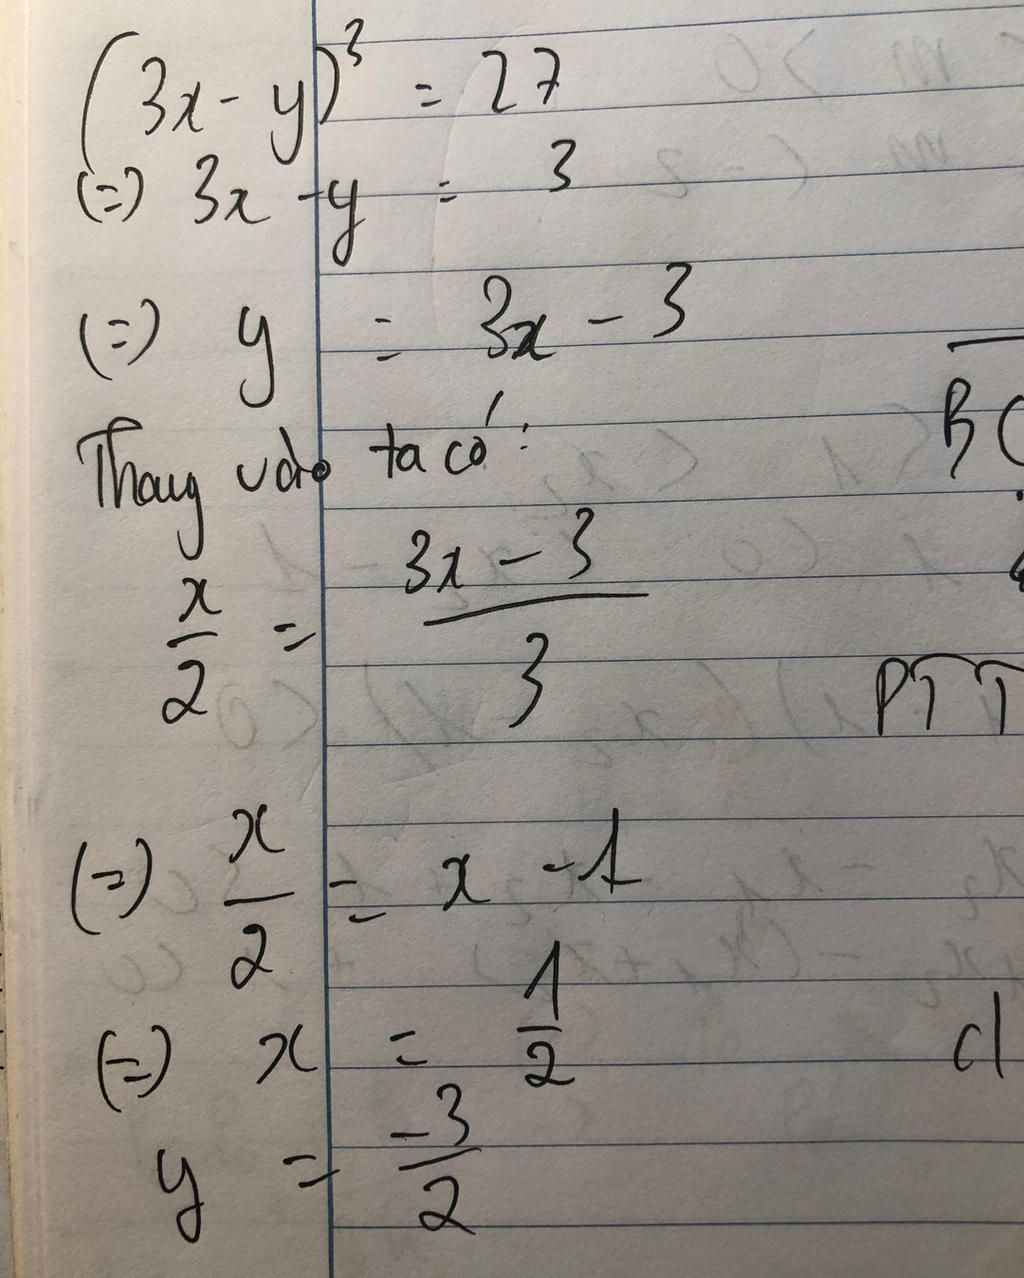 (3x - y)³ = 27
(=) 3x - y = 3
(=) y = 3x - 3
Thay vào ta có:
x/2 = (3x - 3)/3
(=) x/2 = x - 1
(=) x = 1/2
y = -3/2
B C
PTT
d